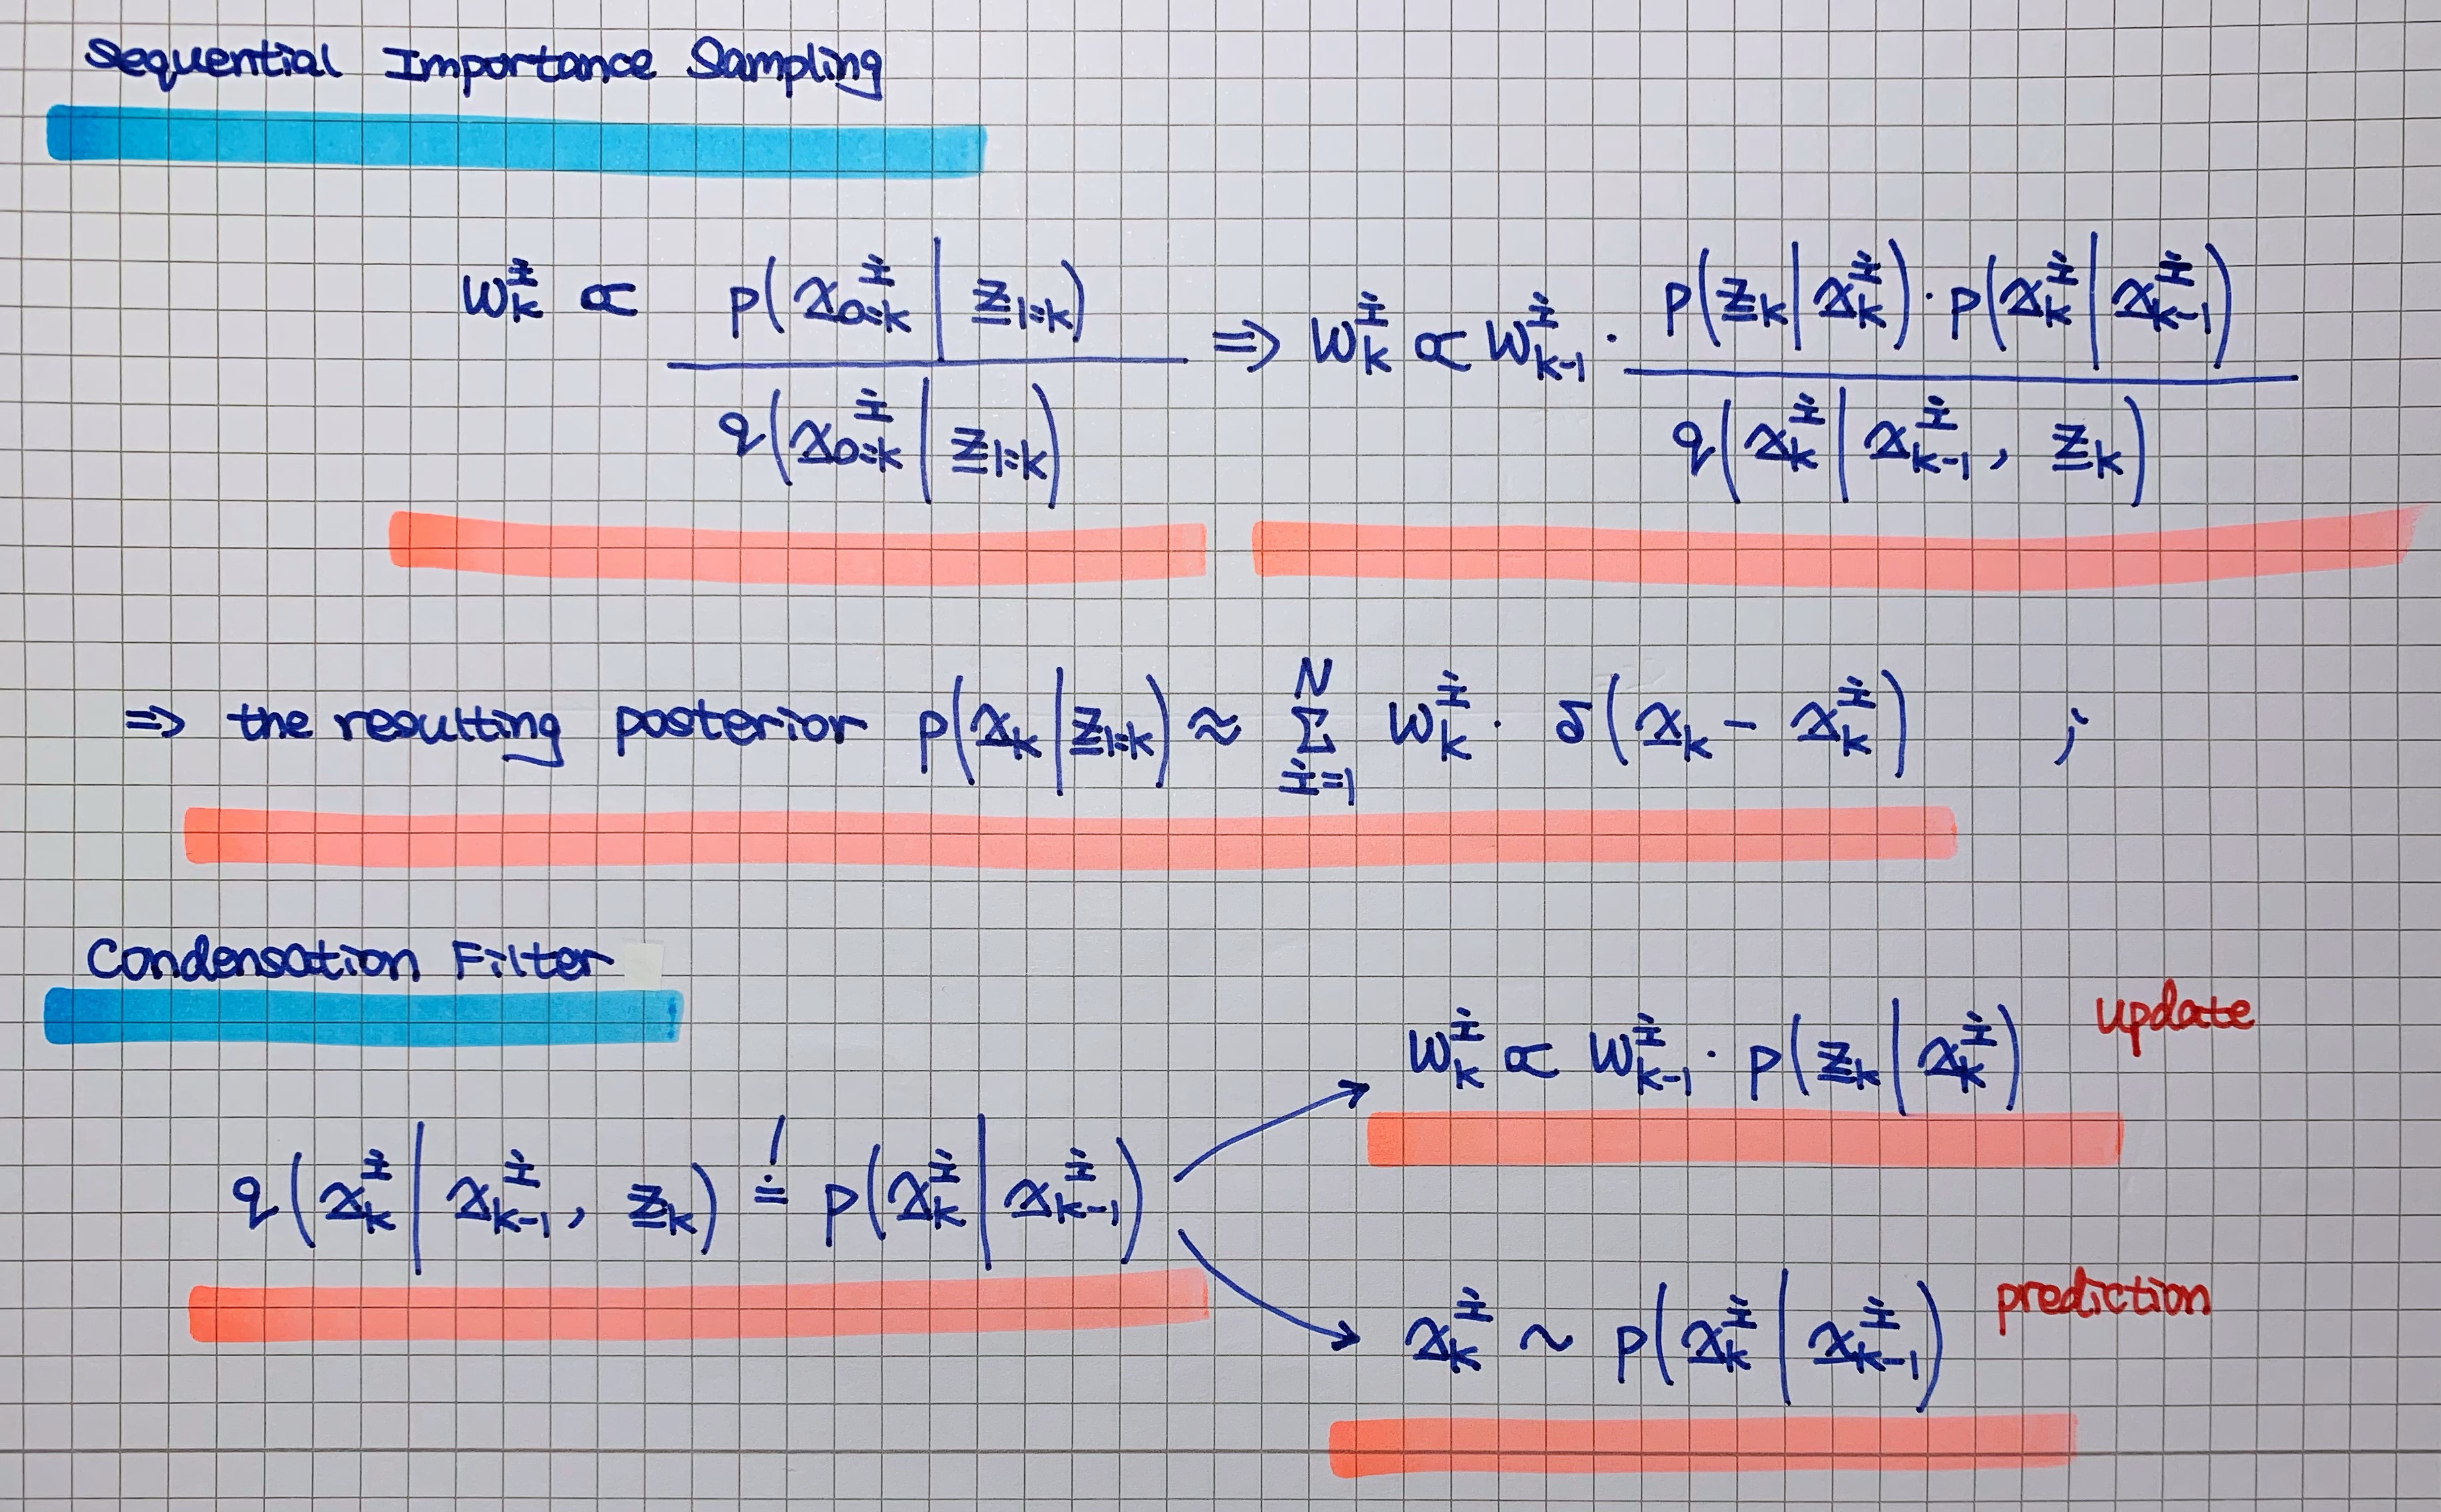 Sequential Importance Sampling
$w_k^i \propto \frac{p(x_{0:k}^i | z_{1:k})}{q(x_{0:k}^i | z_{1:k})} \Rightarrow w_k^i \propto w_{k-1}^i \cdot \frac{p(z_k | x_k^i) \cdot p(x_k^i | x_{k-1}^i)}{q(x_k^i | x_{k-1}^i, z_k)}$
⇒ the resulting posterior $p(x_k | z_{1:k}) \approx \sum_{i=1}^{N} w_k^i \cdot \delta(x_k - x_k^i)$ ;
Condensation Filter
$w_k^i \propto w_{k-1}^i \cdot p(z_k | x_k^i)$ update
$q(x_k^i | x_{k-1}^i, z_k) \overset{!}{=} p(x_k^i | x_{k-1}^i)$
$x_k^i \sim p(x_k^i | x_{k-1}^i)$ prediction